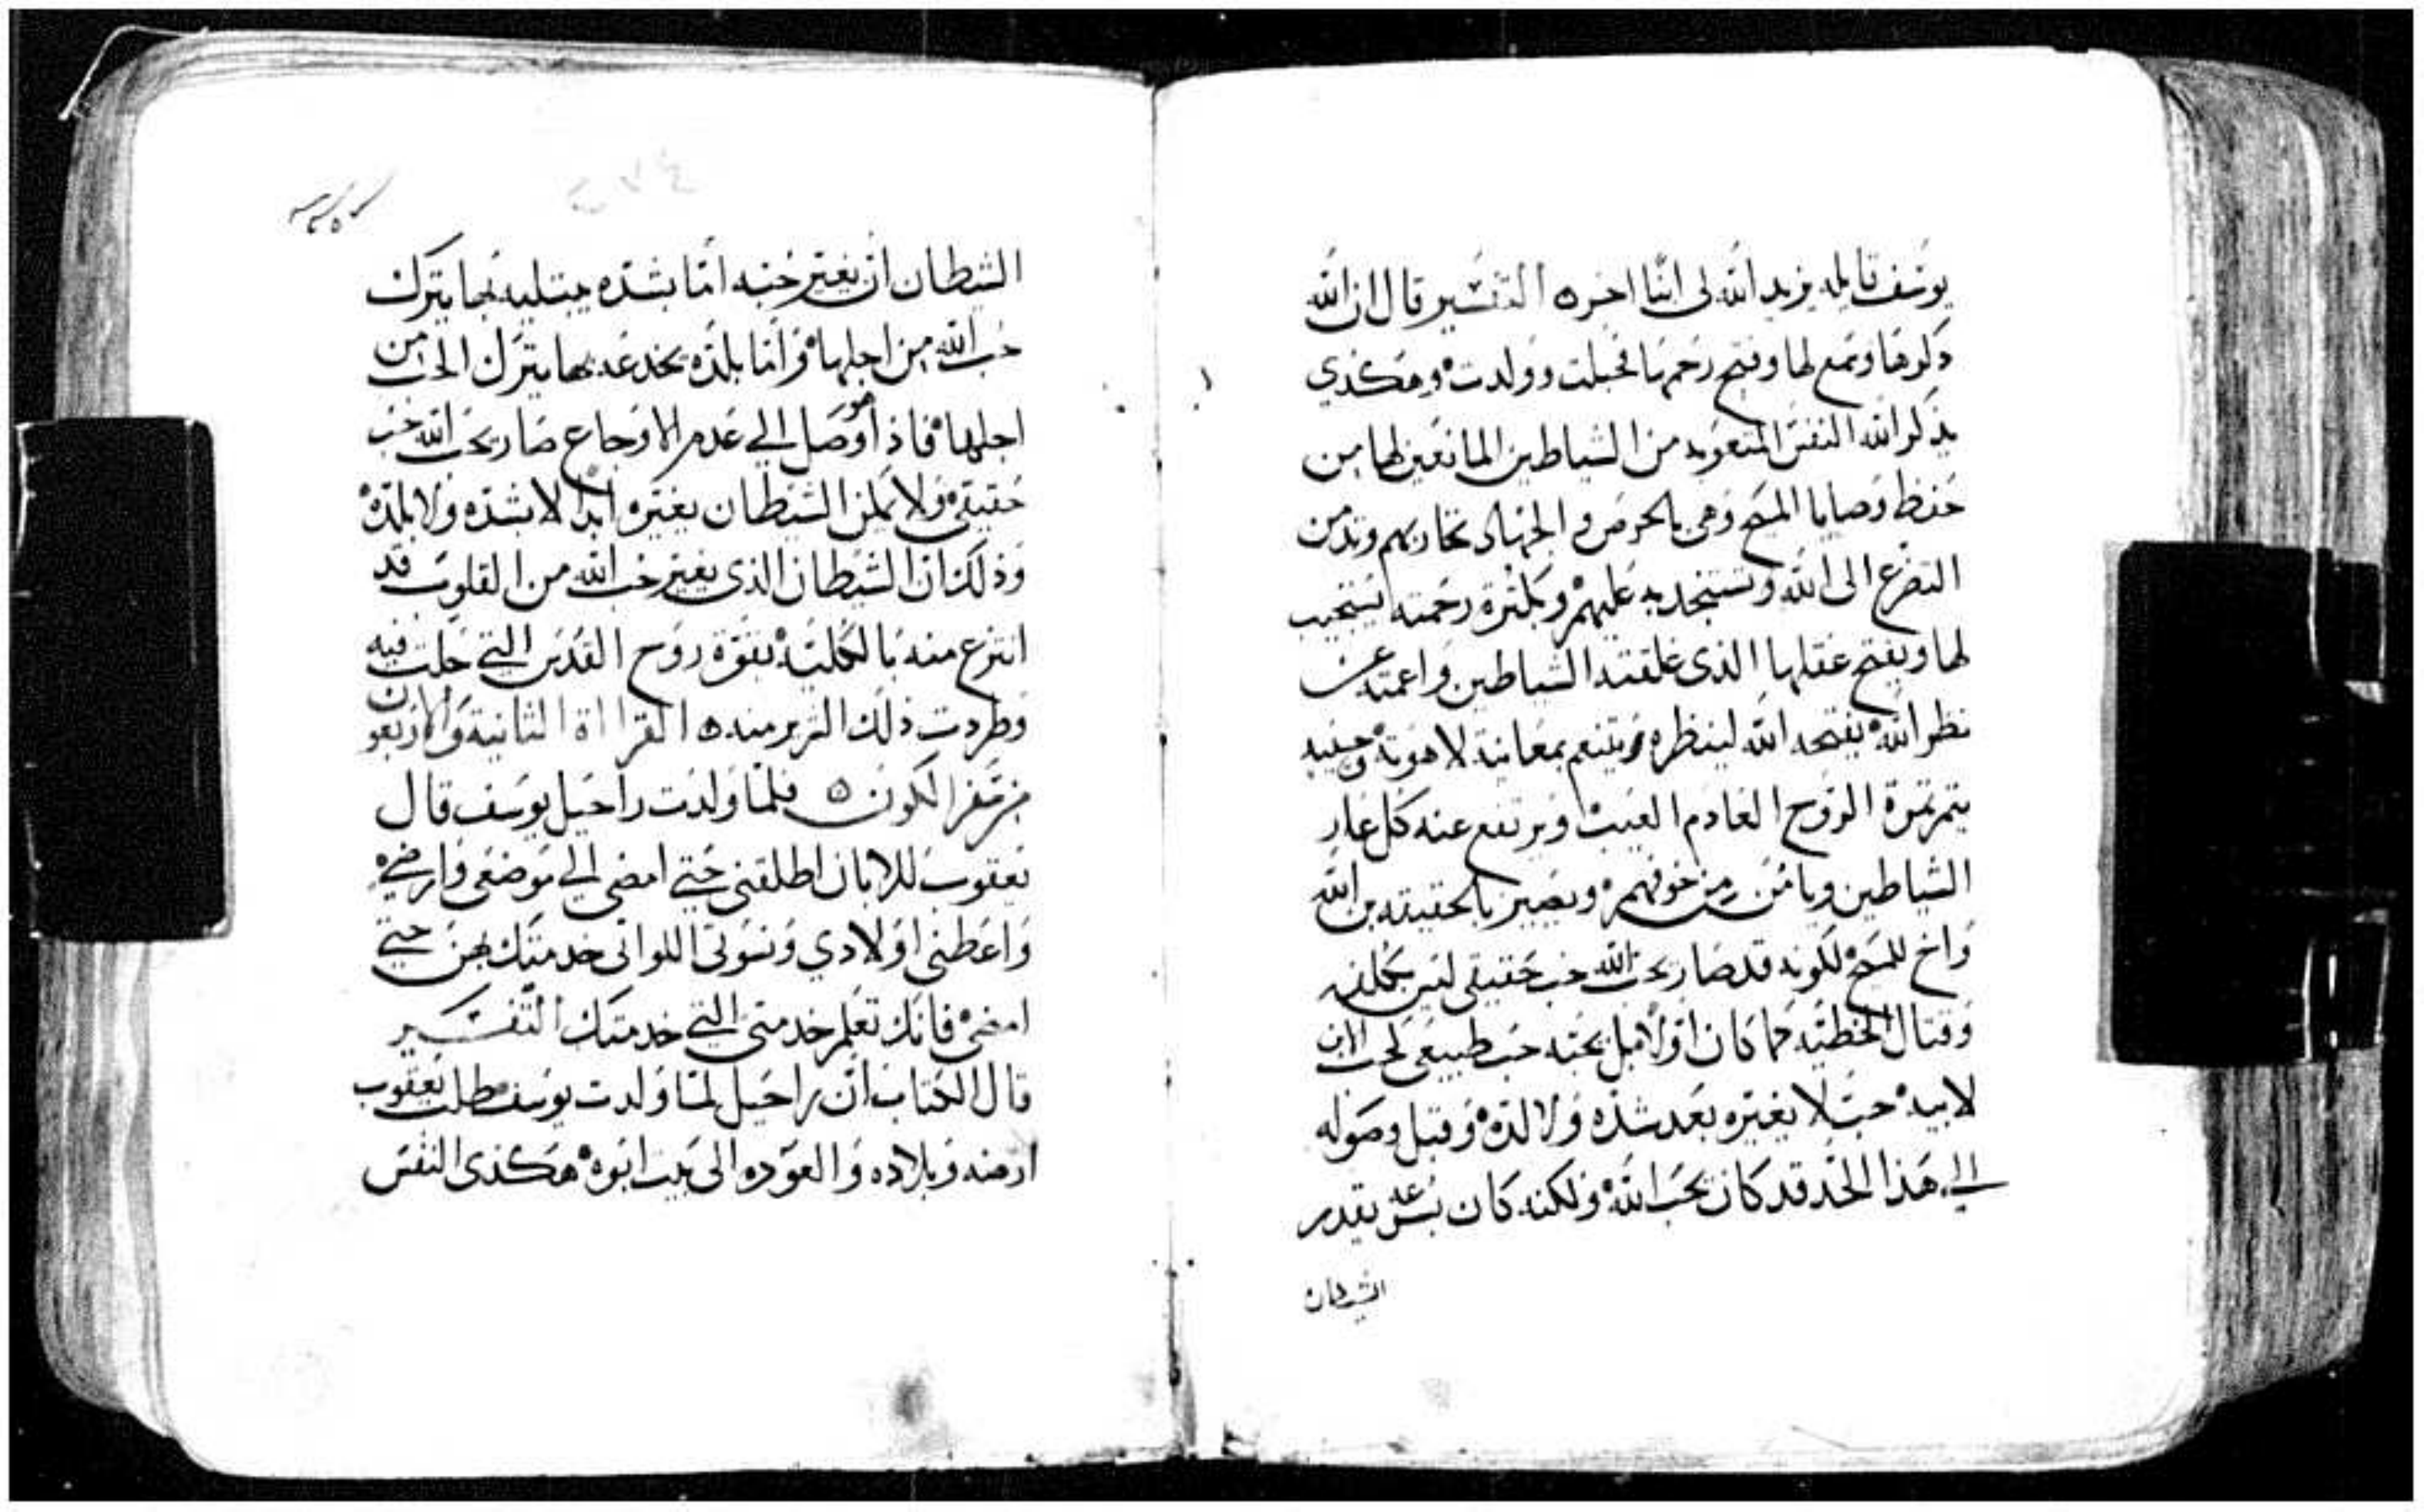 يوسف قايله يزيد الله لى ابنا اخر ٥ التفسير قال ان الله
ذكرها وسمع لها وفتح رحمها فحبلت وولدت وهكذي
يذكر الله النفس المتعوبه من الشياطين المانعين لها من
حفظ وصايا المسيح وهى بالحرص والجهاد تحاربهم وتدمن
التضرع الى الله وتستنجد به عليهم وبكثرة رحمته يستجيب
لها ويفتح عقلها الذى غلقته الشياطين واعمته عن
نظر الله يفتحه الله لينظره ويتنعم بمعاينة لاهوته وحينيد
يتمر تمرة الروح العادم العيب ويرتفع عنه كل عار
الشياطين ويامن من خوفهم ويصير بالحقيقه بن الله
واخ للمسيح لكونه قد صار يحب الله حب حقيقى ليس بكلفه
وقتال الخطيه كما كان اولا قبل يحبه حب طبيعى كحب الابن
لابيه حب لا يغيره بعد شده ولا لذه وقبل وصوله
الى هذا الحد قد كان يحب الله ولكنه كان بسرعه يقدر
الشيطان
الشيطان ان يغير حبه اما بشده يبتليه بها يترك
حب الله من اجلها واما بلذه يخدعه بها يترك الحب من
اجلها فاذا هو وصل الي عدم الاوجاع صار يحب الله حب
حقيقى ولا يمكن الشيطان يغيره ابدا لا بشده ولا بلذه
وذلك ان الشيطان الذى يغير حب الله من القلوب قد
انتزع منه بالكليه بقوة روح القدس التي حلت فيه
وطردت ذلك الشرير منه ٥ القرااة الثانية والاربعون
من سفر الكون ٥ فلما ولدت راحيل يوسف قال
يعقوب للابان اطلقنى حتي امضى الي موضعى وارضي
واعطنى اولادي ونسوتى اللواتى خدمتك بهن حتي
امضى فانك تعلم خدمتى التي خدمتك التفسير
قال الكتاب ان راحيل لما ولدت يوسف طلب يعقوب
ارضه وبلاده والعوده الى بيت ابوه هكذى النفس